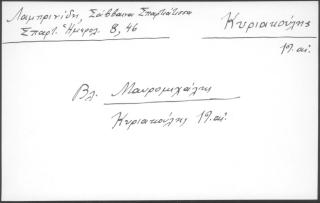 Λαμπρινίδη, Σάββαινα Σπαρτιάτισσα
Σπαρτ. Ἡμερολ. 8, 46
Κυριακούλης
19. αἰ.
Βλ. Μαυρομιχάλης
Κυριακούλης 19. αἰ.